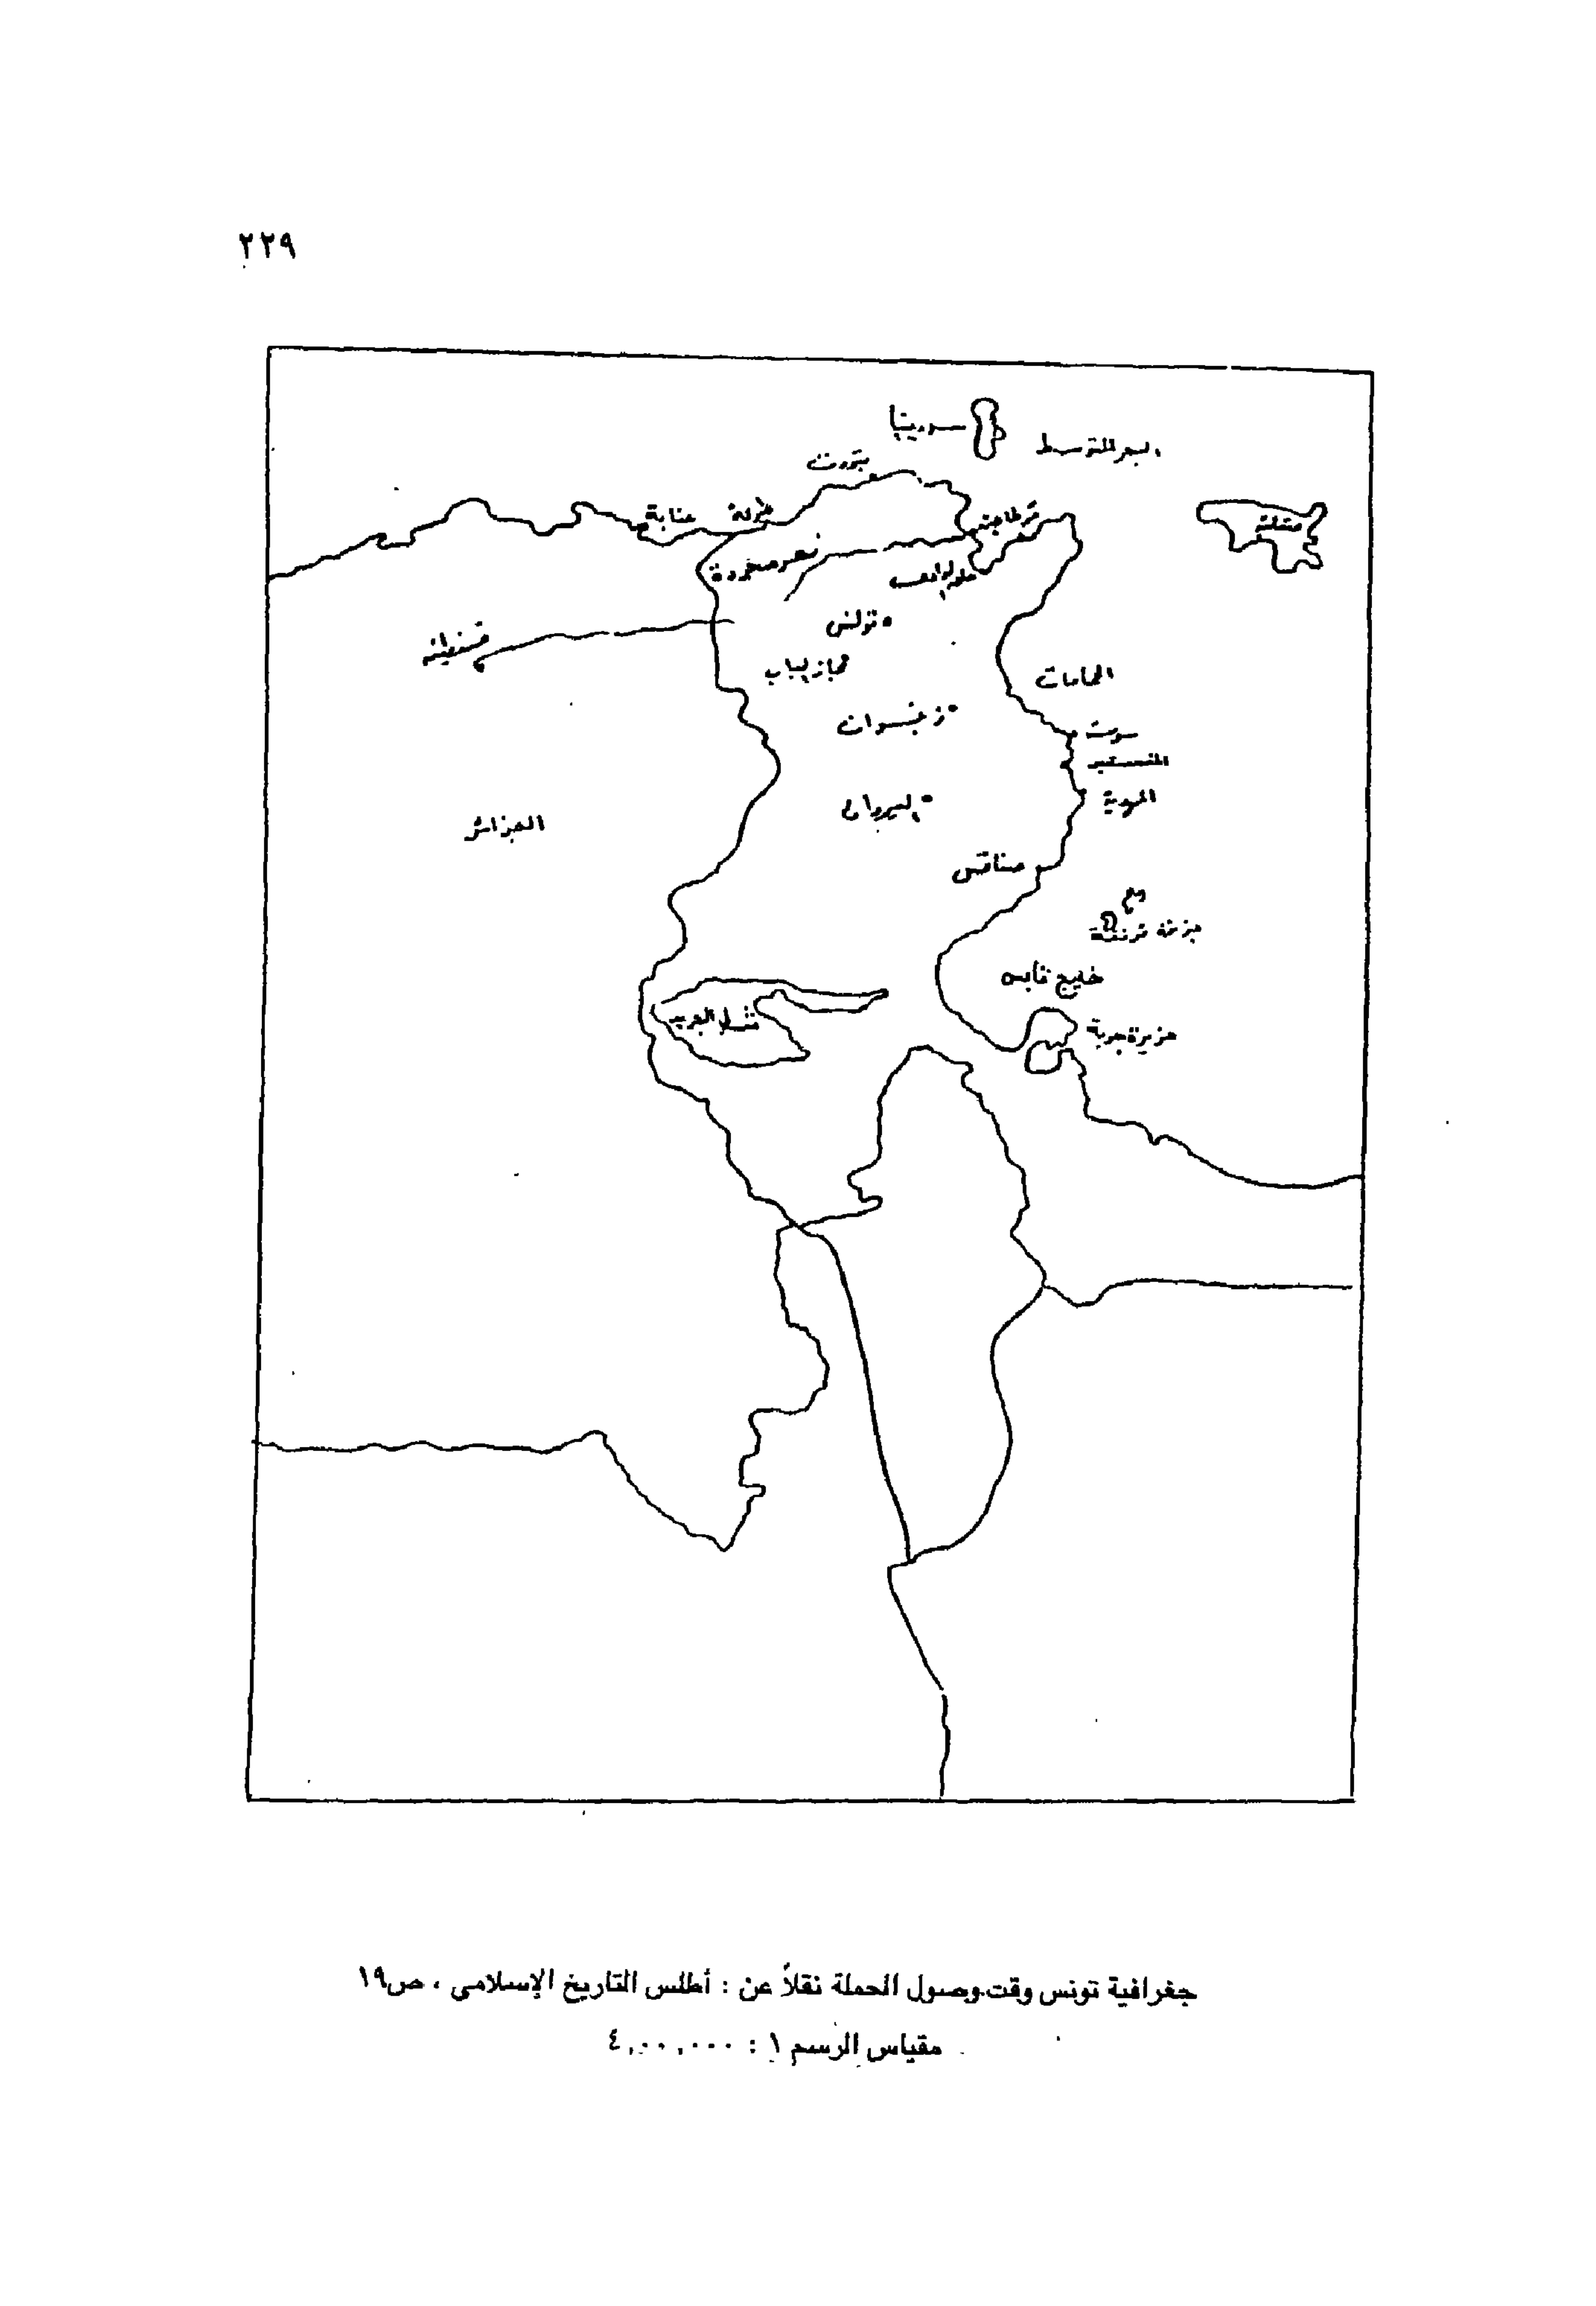 ٢٢٩
سردينيا
البحر المتوسط
بنزرت
عنابة
طبرقة
قرطاجنة
صقلية
نهر مجردة
حلق الواد
تونس
قسنطينة
مجاز الباب
الحمامات
زغوان
سوسة
المنستير
القيروان
المهدية
الجزائر
صفاقس
جزر قرقنة
خليج قابس
شط الجريد
جزيرة جربة
جغرافية تونس وقت وصول الحملة نقلاً عن : أطلس التاريخ الإسلامي ، ص١٩
مقياس الرسم ١ : ٤,٠٠,٠٠٠